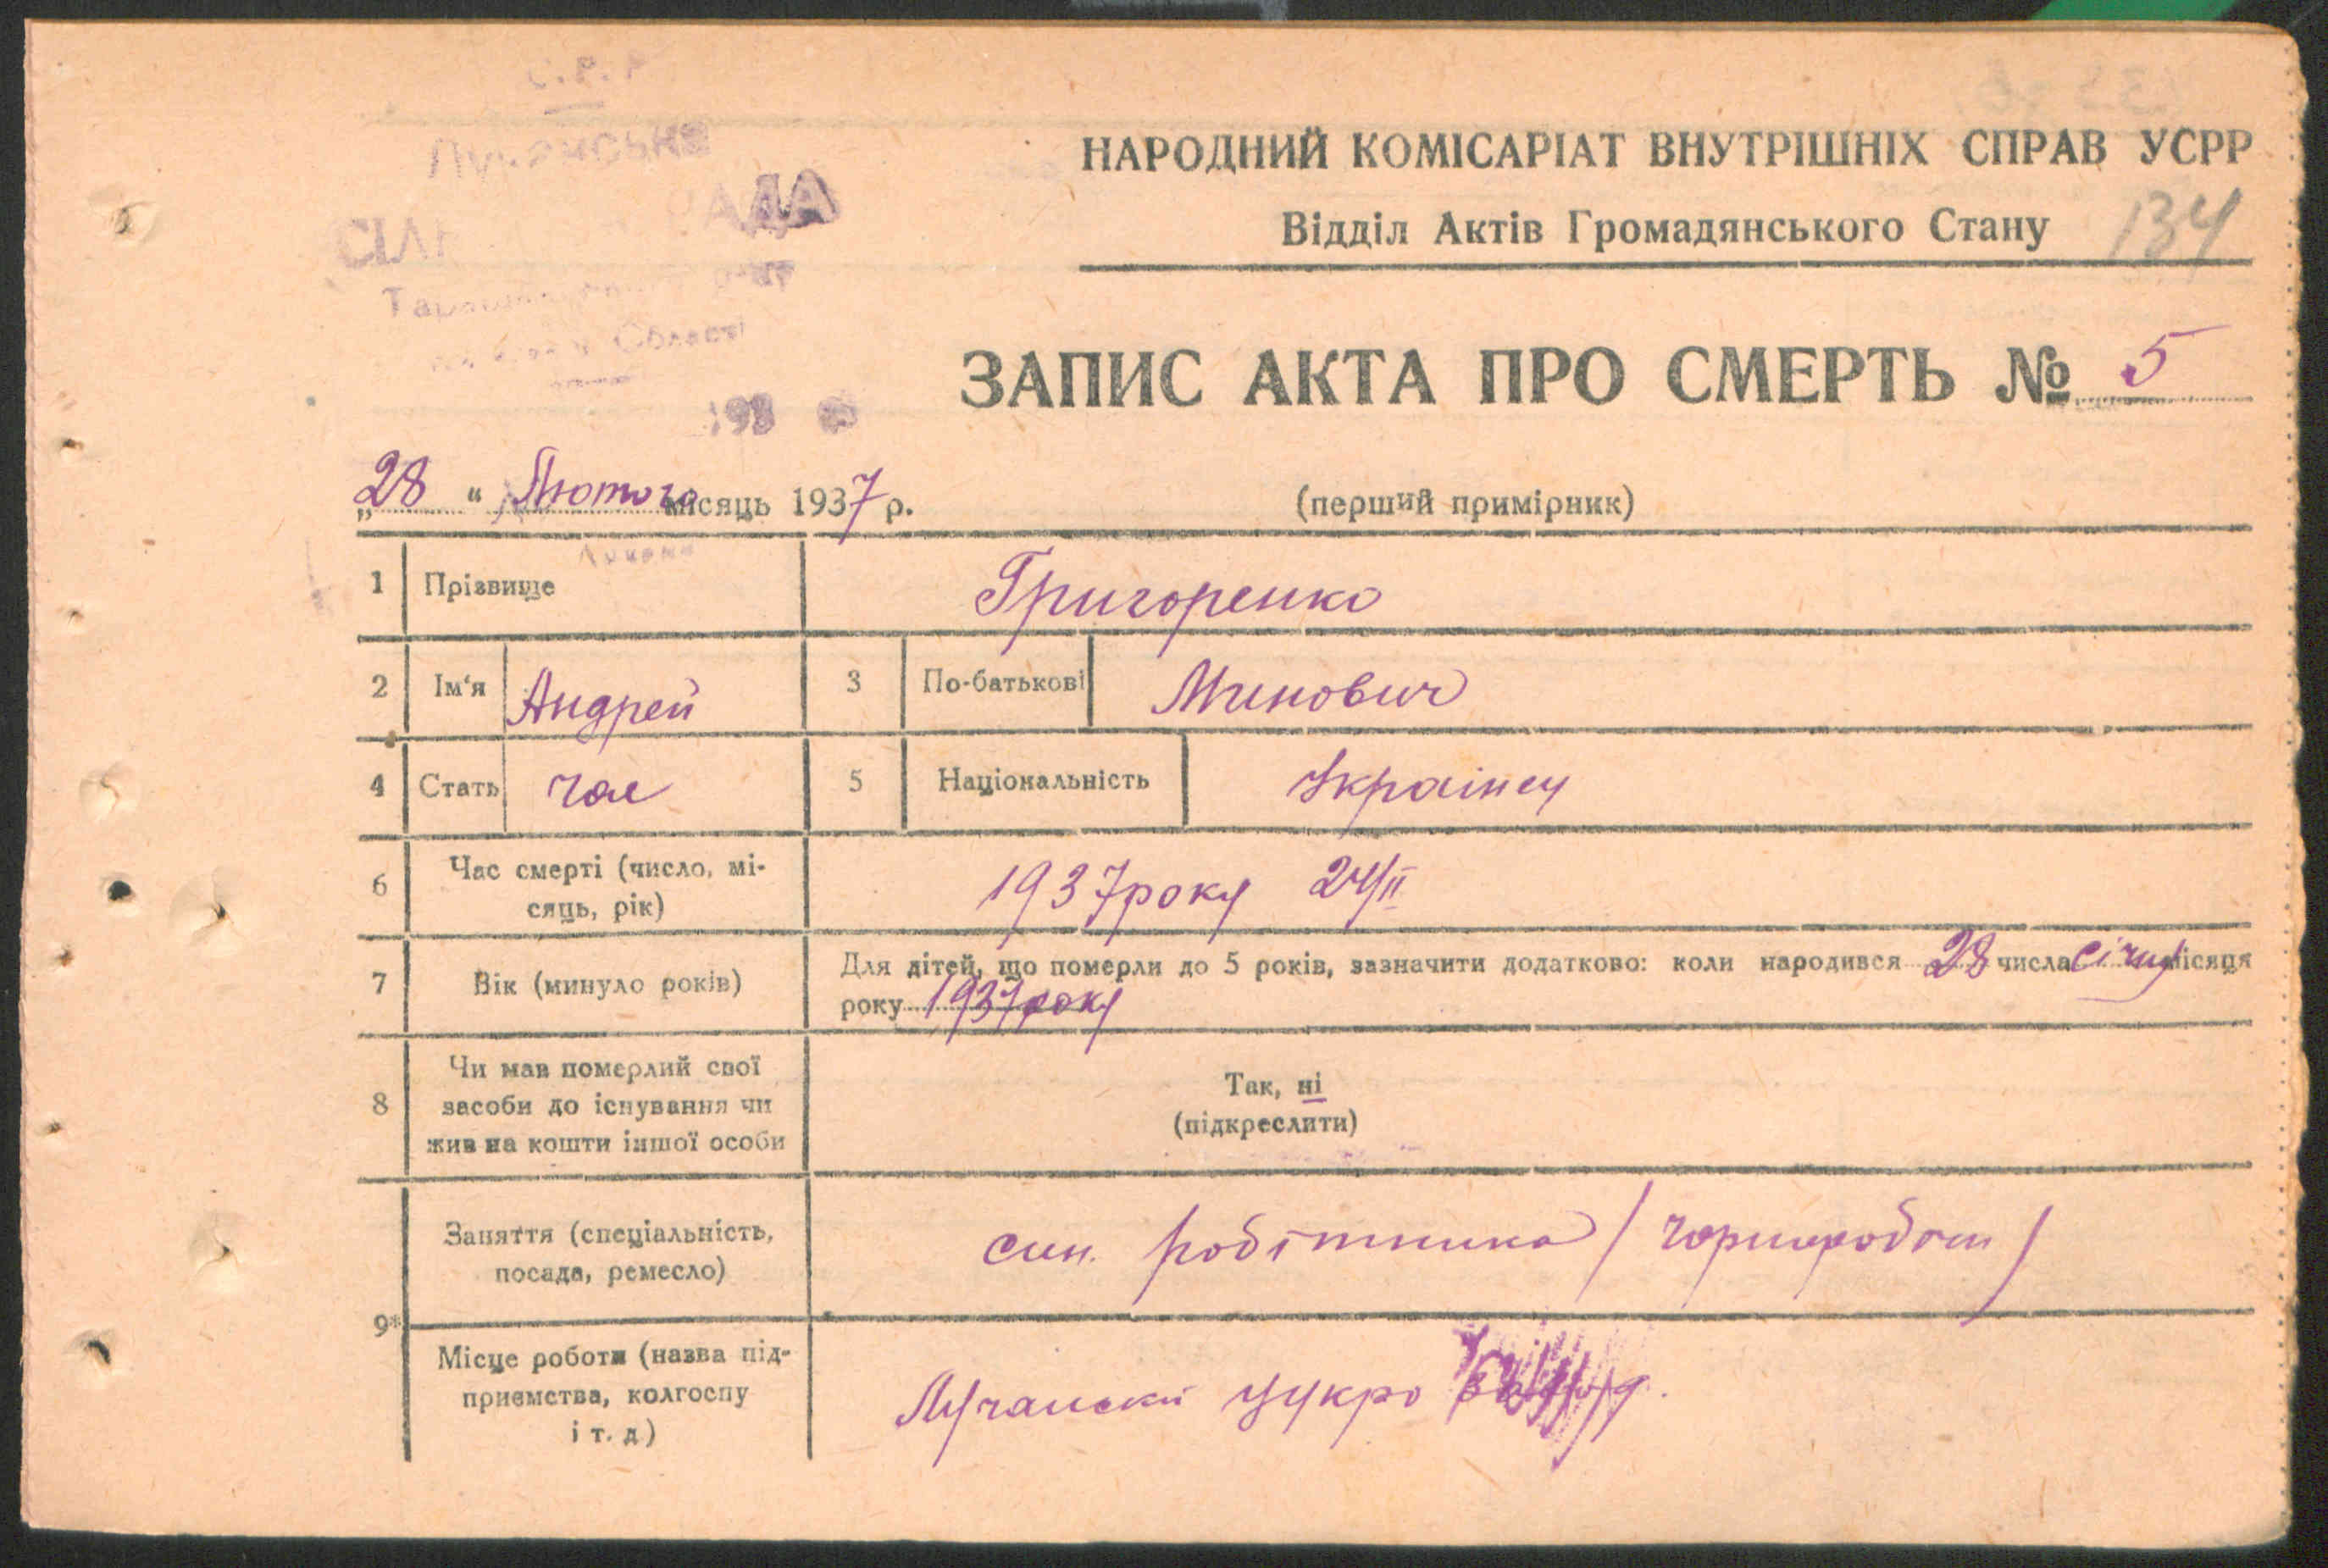 РАДА
193
НАРОДНИЙ КОМІСАРІАТ ВНУТРІШНІХ СПРАВ УСРР
Відділ Актів Громадянського Стану 134
ЗАПИС АКТА ПРО СМЕРТЬ № 5
„28“ Лютого місяць 1937 р.
(перший примірник)
1 Прізвище Григоренко
2 Ім'я Андрей 3 По-батькові Минович
4 Стать чол 5 Національність Українец
6 Час смерті (число, мі-
сяць, рік) 1937 року 24/II
7 Вік (минуло років) Для дітей, що померли до 5 років, зазначити додатково: коли народився 28 числа січня місяця
року 1937 року
8 Чи мав померлий свої
засоби до існування чи
жив на кошти іншої особи
Так, ні
(підкреслити)
9* Заняття (спеціальність,
посада, ремесло) син. робітника /чорнороботи/
Місце роботи (назва під-
приємства, колгоспу
і т. д) Лучански цукро